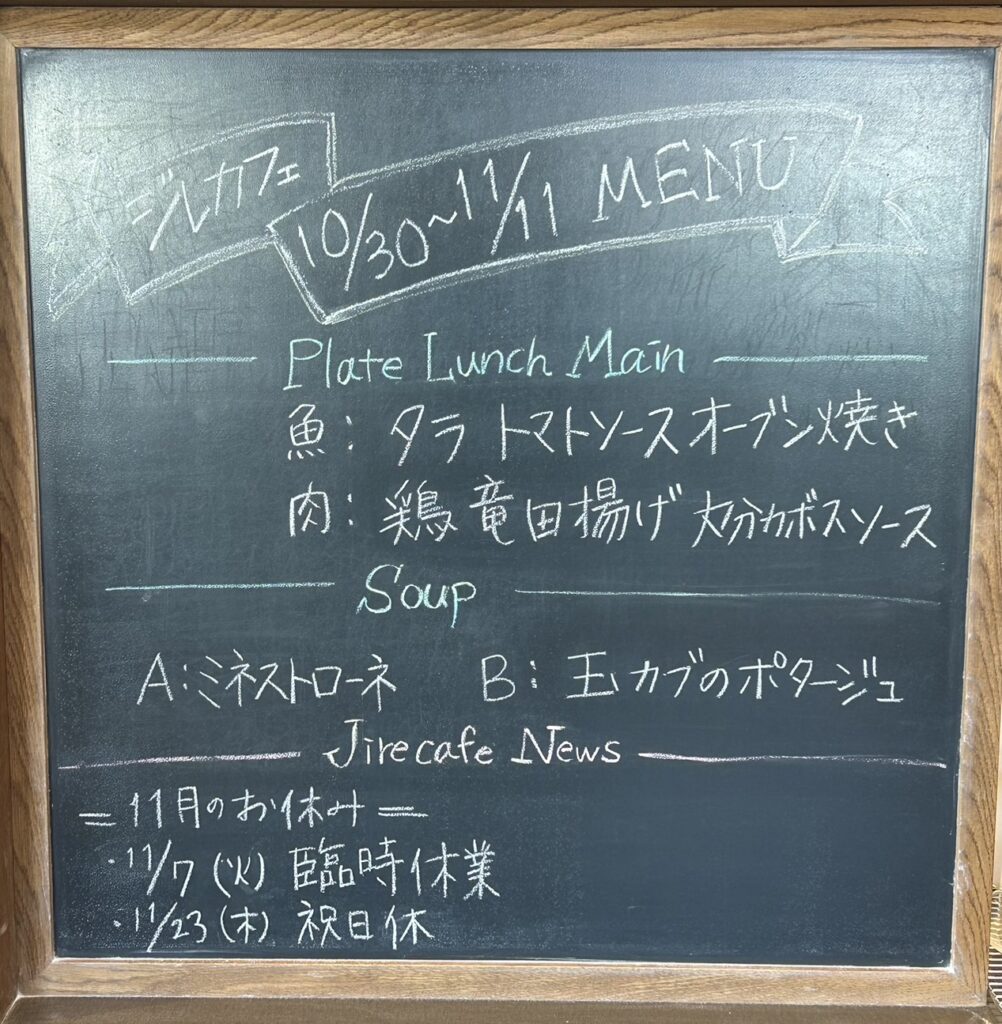 ジルカフェ
10/30~11/11 MENU
Plate Lunch Main
魚: タラ トマトソースオーブン焼き
肉: 鶏竜田揚げ 大分カボスソース
Soup
A:ミネストローネ B: 玉カブのポタージュ
Jirecafe News
=11月のお休み=
・11/7(火) 臨時休業
・11/23(木) 祝日休